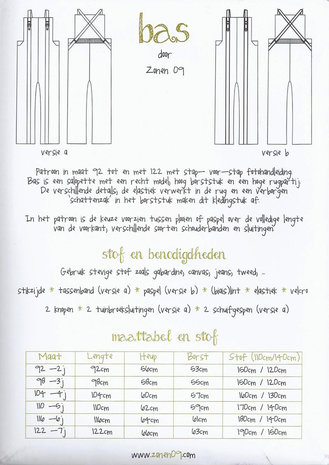 bas
door
Zonen 09
versie a
versie b
Patroon in maat 92 tot en met 122 met stap-voor-stap fotohandleiding
Bas is een salopette met een recht model, hoog borststuk en een hoge rugpartij.
De verschillende details, de elastiek verwerkt in de rug en een verborgen
schattenzak in het borststuk maken dit kledingstuk af.
In het patroon is de keuze voorzien tussen plooien of paspel over de volledige lengte
van de voorkant, verschillende soorten schouderbanden en sluitingen
stof en benodigdheden
Gebruik stevige stof zoals gabardine, canvas, jeans, tweed, ..
stikzijde * tassenband (versie a) * paspel (versie b) * (biais)lint * elastiek * velcro
2 knopen * 2 tuinbroeksluitingen (versie a) * 2 schuifgespen (versie a)
maattabel en stof
Maat Lengte Heup Borst Stof (110cm/140cm)
92 -2j 92cm 56cm 53cm 150cm / 120cm
98 -3j 98cm 58cm 55cm 150cm / 120cm
104 -4j 104cm 60cm 57cm 160cm / 130cm
110 -5j 110cm 62cm 59cm 170cm / 140cm
116 -6j 116cm 64cm 61cm 180cm / 140cm
122 -7j 122cm 66cm 63cm 190cm / 150cm
www.zonen09.com